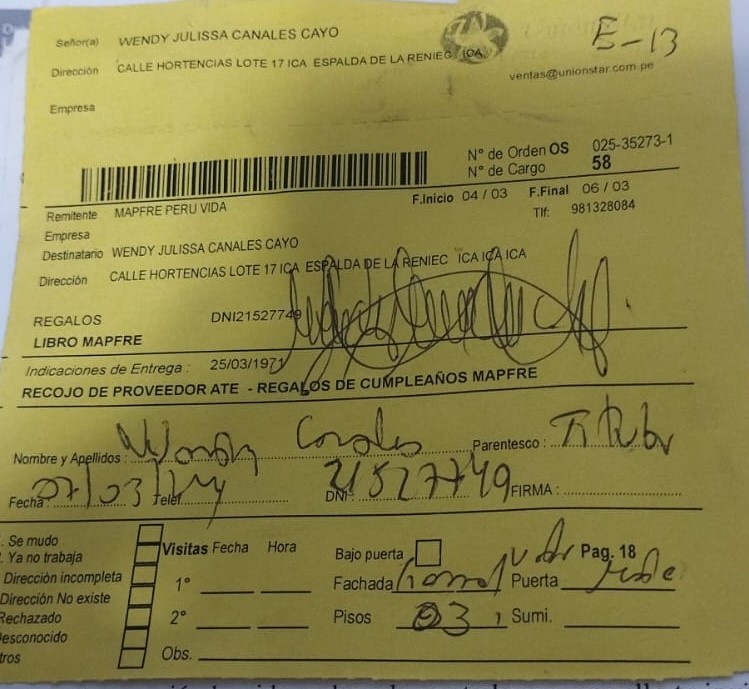 Señor(a) WENDY JULISSA CANALES CAYO
E-13
Dirección CALLE HORTENCIAS LOTE 17 ICA ESPALDA DE LA RENIEC ICA
ventas@unionstar.com.pe
Empresa
N° de Orden OS 025-35273-1
N° de Cargo 58
F.Inicio 04 / 03 F.Final 06 / 03
Remitente MAPFRE PERU VIDA
Tlf: 981328084
Empresa
Destinatario WENDY JULISSA CANALES CAYO
Dirección CALLE HORTENCIAS LOTE 17 ICA ESPALDA DE LA RENIEC ICA ICA ICA
REGALOS DNI21527749
LIBRO MAPFRE
Indicaciones de Entrega : 25/03/1971
RECOJO DE PROVEEDOR ATE - REGALOS DE CUMPLEAÑOS MAPFRE
Nombre y Apellidos : Wendy Canales Parentesco : Titular
Fecha: 07/03/24 Telef. DNI: 21527749 FIRMA :
. Se mudo
. Ya no trabaja
Dirección incompleta
Dirección No existe
Rechazado
esconocido
tros
Visitas Fecha Hora
1°
2°
Obs.
Bajo puerta Pag. 18
Fachada Puerta
Pisos 03 Sumi.